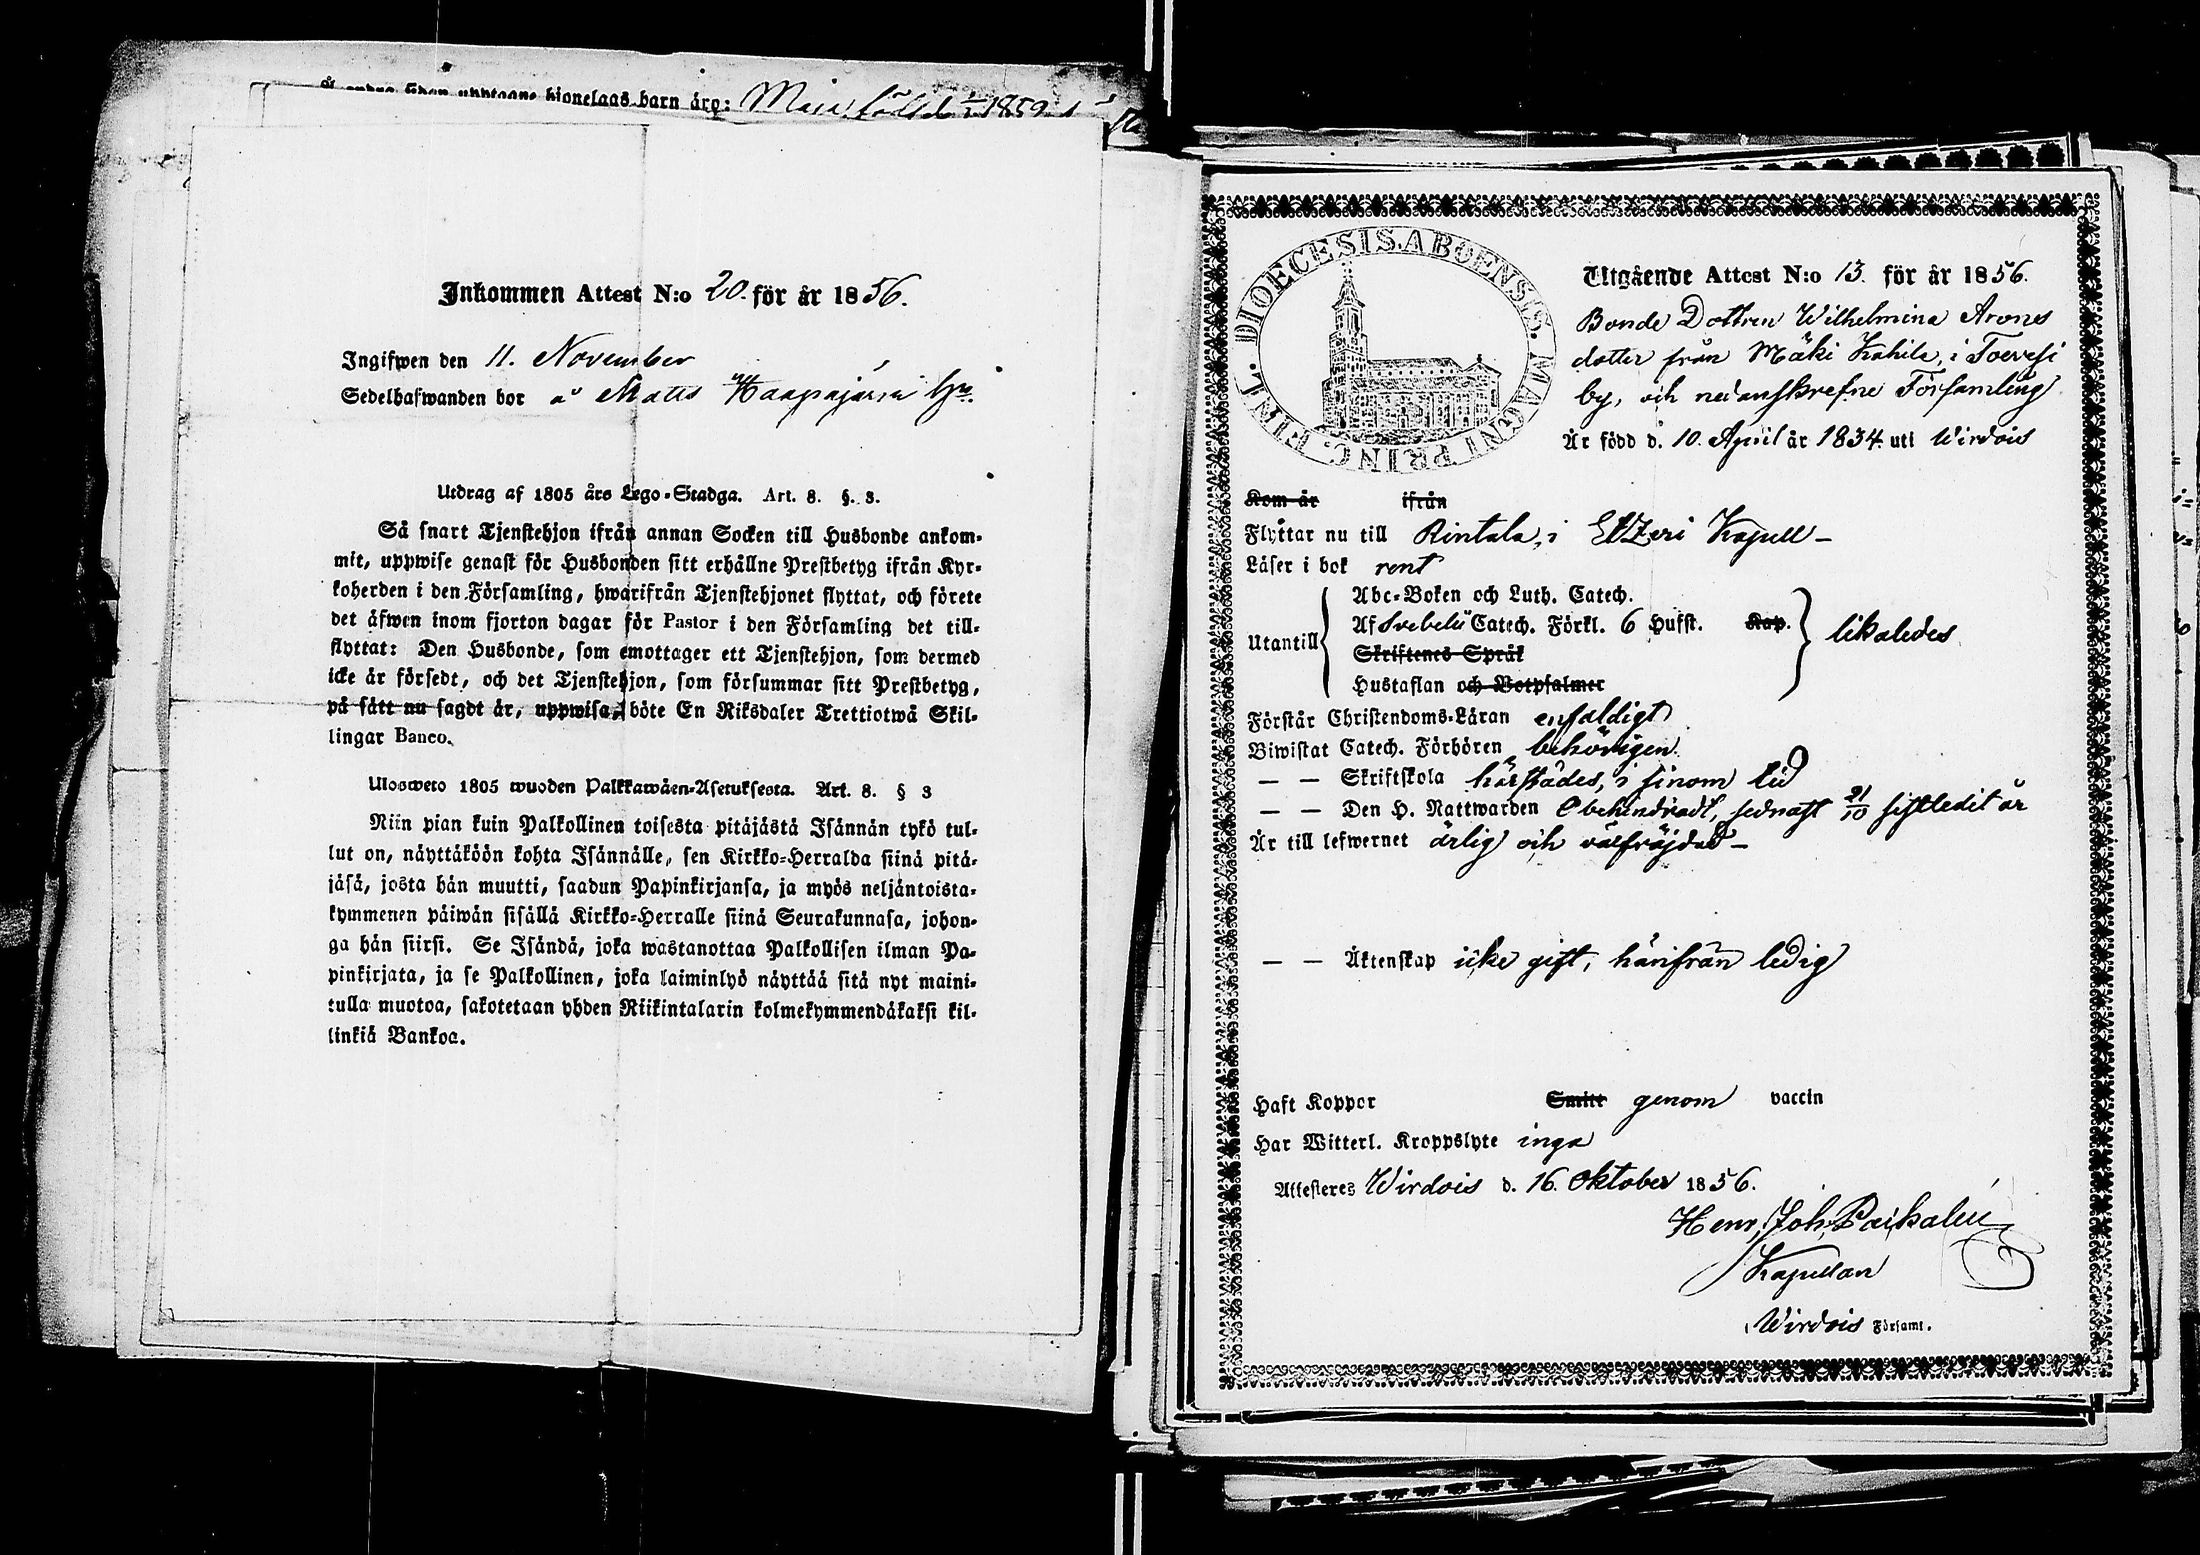 barn äro: Maia född d. 1859
Inkommen Attest N:o 20. för år 1856.
Ingifwen den 11. November
Sedelhafwanden bor å Matts Haapajärvi hn.
Utdrag af 1805 års Lego-Stadga. Art. 8. §. 3.
Så snart Tjenstehjon ifrån annan Socken till Husbonde ankom-
mit, uppwise genast för Husbonden sitt erhållne Prestbetyg ifrån Kyr-
koherden i den Församling, hwarifrån Tjenstehjonet flyttat, och förete
det äfwen inom fjorton dagar för Pastor i den Församling det till-
flyttat: Den Husbonde, som emottager ett Tjenstehjon, som dermed
icke är försedt, och det Tjenstehjon, som försummar sitt Prestbetyg,
på sätt nu sagdt är, uppwisa, böte En Riksdaler Trettiotwå Skil-
lingar Banco.
Ulosweto 1805 wuoden Palkkawäen-Asetuksesta. Art. 8. § 3
Niin pian kuin Palkollinen toisesta pitäjästä Isännän tykö tul-
lut on, näyttäköön kohta Isännälle, sen Kirkko-Herralda siinä pitä-
jäsä, josta hän muutti, saadun Papinkirjansa, ja myös neljäntoista-
kymmenen päiwän sisällä Kirkko-Herralle siinä Seurakunnasa, johon-
ga hän siirsi. Se Isändä, joka wastanottaa Palkollisen ilman Pa-
pinkirjata, ja se Palkollinen, joka laiminlyö näyttää sitä nyt maini-
tulla muotoa, sakotetaan yhden Riikintalarin kolmekymmendäkaksi kil-
linkiä Bankoa.
DIOECESIS. ABOENSIS. MAGNI PRINC. FINL.
Utgående Attest N:o 13. för år 1856.
Bonde Dottren Wilhelmina Arons
dotter från Mäki Kahila, i Toevesi
by, och nedanskrefne Församling
Är född d. 10. April år 1834. uti Wirdois
Kom år ifrån
Flyttar nu till Rintala, i Etzeri Kapell –
Läser i bok rent
Abc-Boken och Luth. Catech.
Utantill Af Svebelii Catech. Förkl. 6 Hufst. Kap. likaledes
Skriftenes Språk
Hustaflan och Botpsalmer
Förstår Christendoms-Läran enfaldigt
Biwistat Catech. Förhören behörigen
— — Skriftskola härstädes, i sinom tid
— — Den H. Nattwarden Obehindradt, sednast 21/10 sistledit år
Är till lefwernet ärlig och välfräjdad –
— — Äktenskap icke gift, härifrån ledig
Haft Koppor Smitt genom vaccin
Har Witterl. Kroppslyte inga
Attesteres Wirdois d. 16. Oktober 1856.
Henr, Joh, Paikalén
Kapellan
Wirdois Församl.